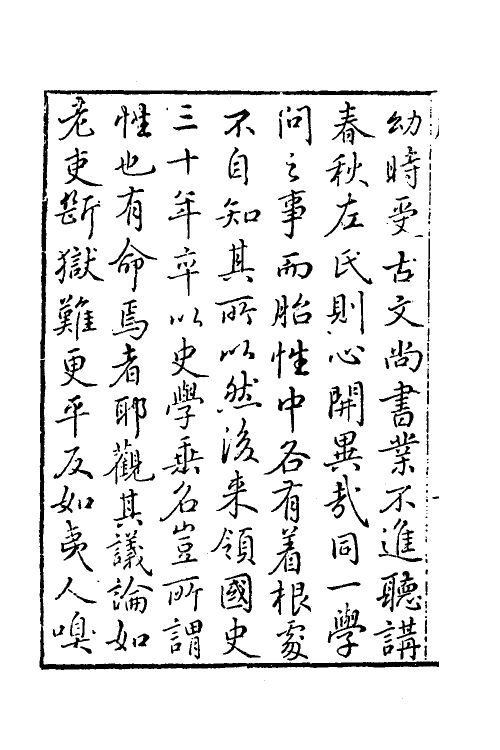 幼時受古文尚書業不進聽講
春秋左氏則心開異哉同一學
問之事而胎性中各有着根處
不自知其所以然後来領國史
三十年卒以史學垂名豈所謂
性也有命焉者耶觀其議論如
老吏斷獄難更平反如夷人嗅